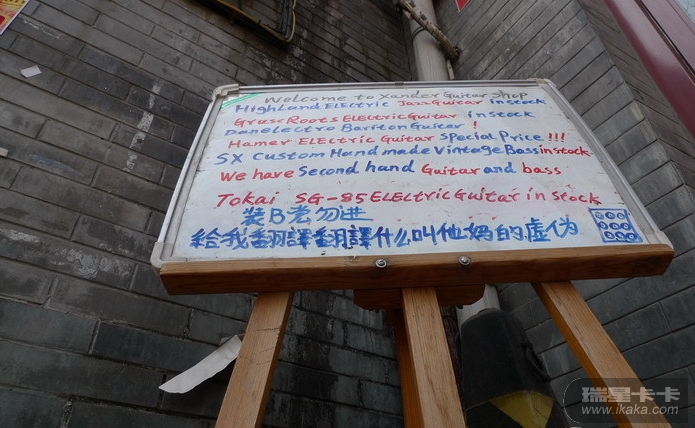 Welcome to Xander Guitar Shop
HighLand ELEctric Jazz Guitar in stock
GrassRoots ELEctric Guitar in stock
Danelectro Bariton Guitar !
Hamer ELEctric Guitar Special Price !!!
SX Custom Hand made Vintage Bass in stock
We have Second hand Guitar and bass
Tokai SG-85 ELEctric Guitar in stock
装B者勿进
給我翻譯翻譯什么叫他妈的虚伪
瑞星卡卡
www.ikaka.com